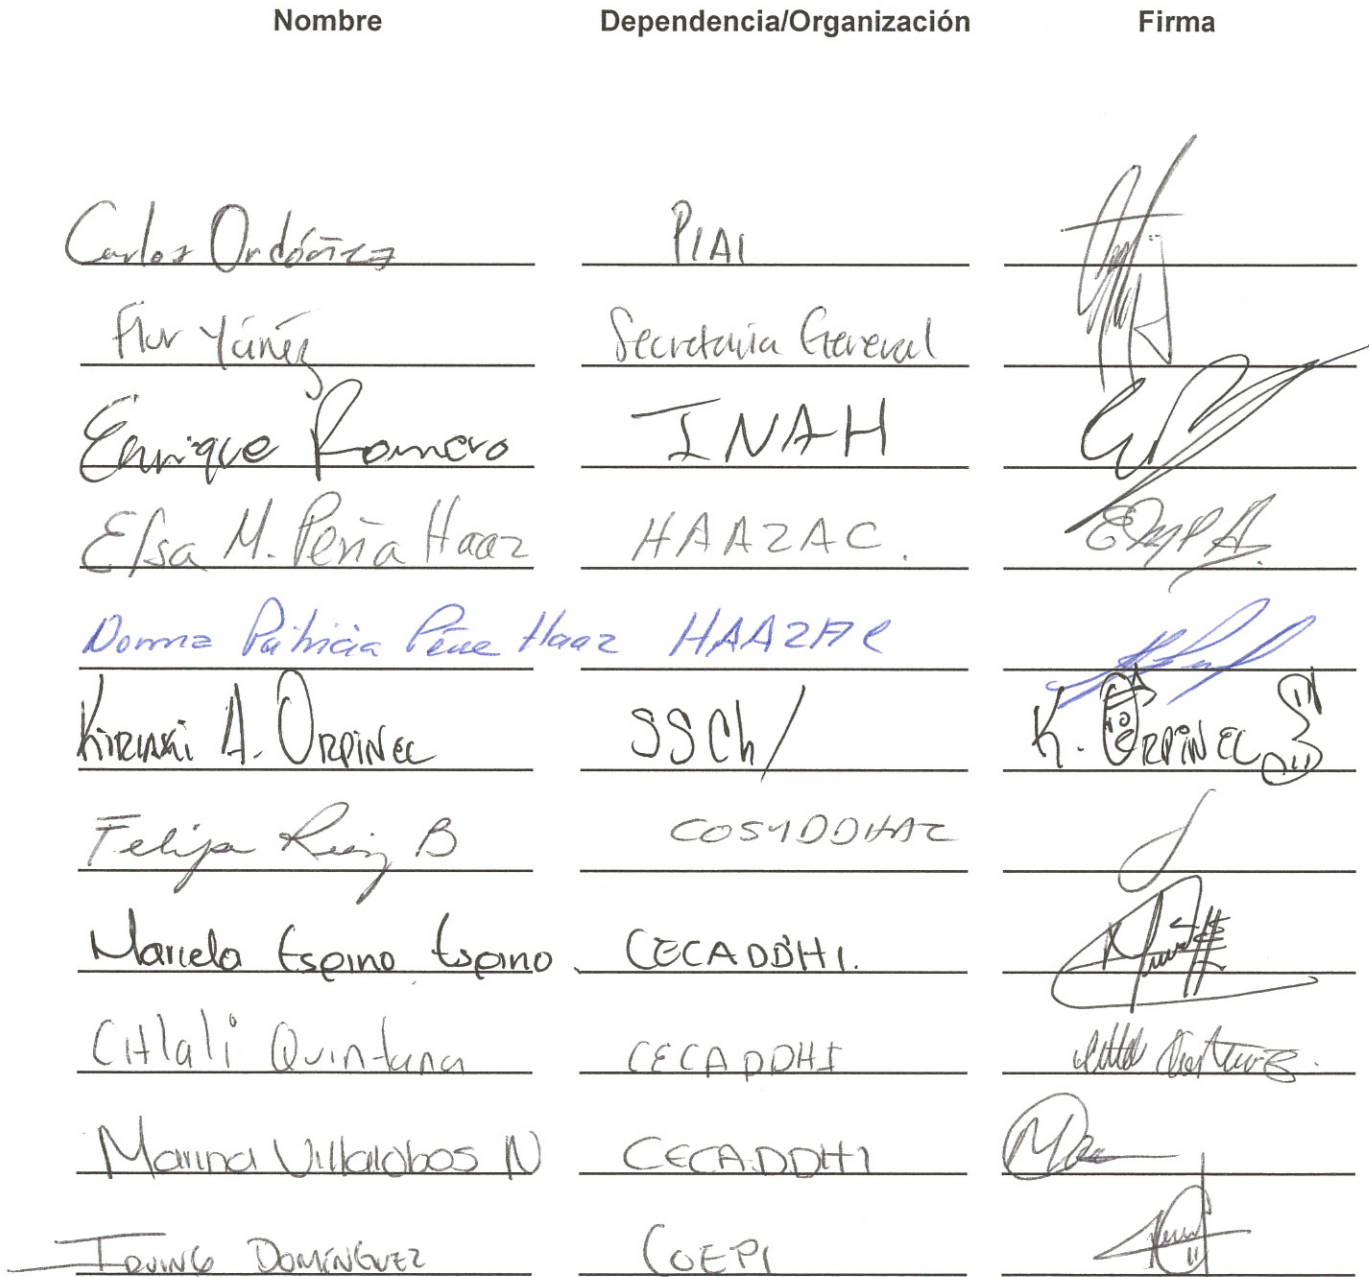 Nombre Dependencia/Organización Firma
Carlos Ordóñez PIAI
Flor Yáñez Secretaria General
Enrique Romero INAH
Elsa M. Peña Haaz HAAZAC.
Norma Patricia Peña Haaz HAAZAC
Kiriaki A. Orpinel SSCh/ K. Orpinel
Felipe Ruiz B COSYDDHAC
Marcela Espino Espino CECADDHI.
Citlali Quintana CECADDHI
Marina Villalobos N CECADDHI
Irving Domínguez COEPI